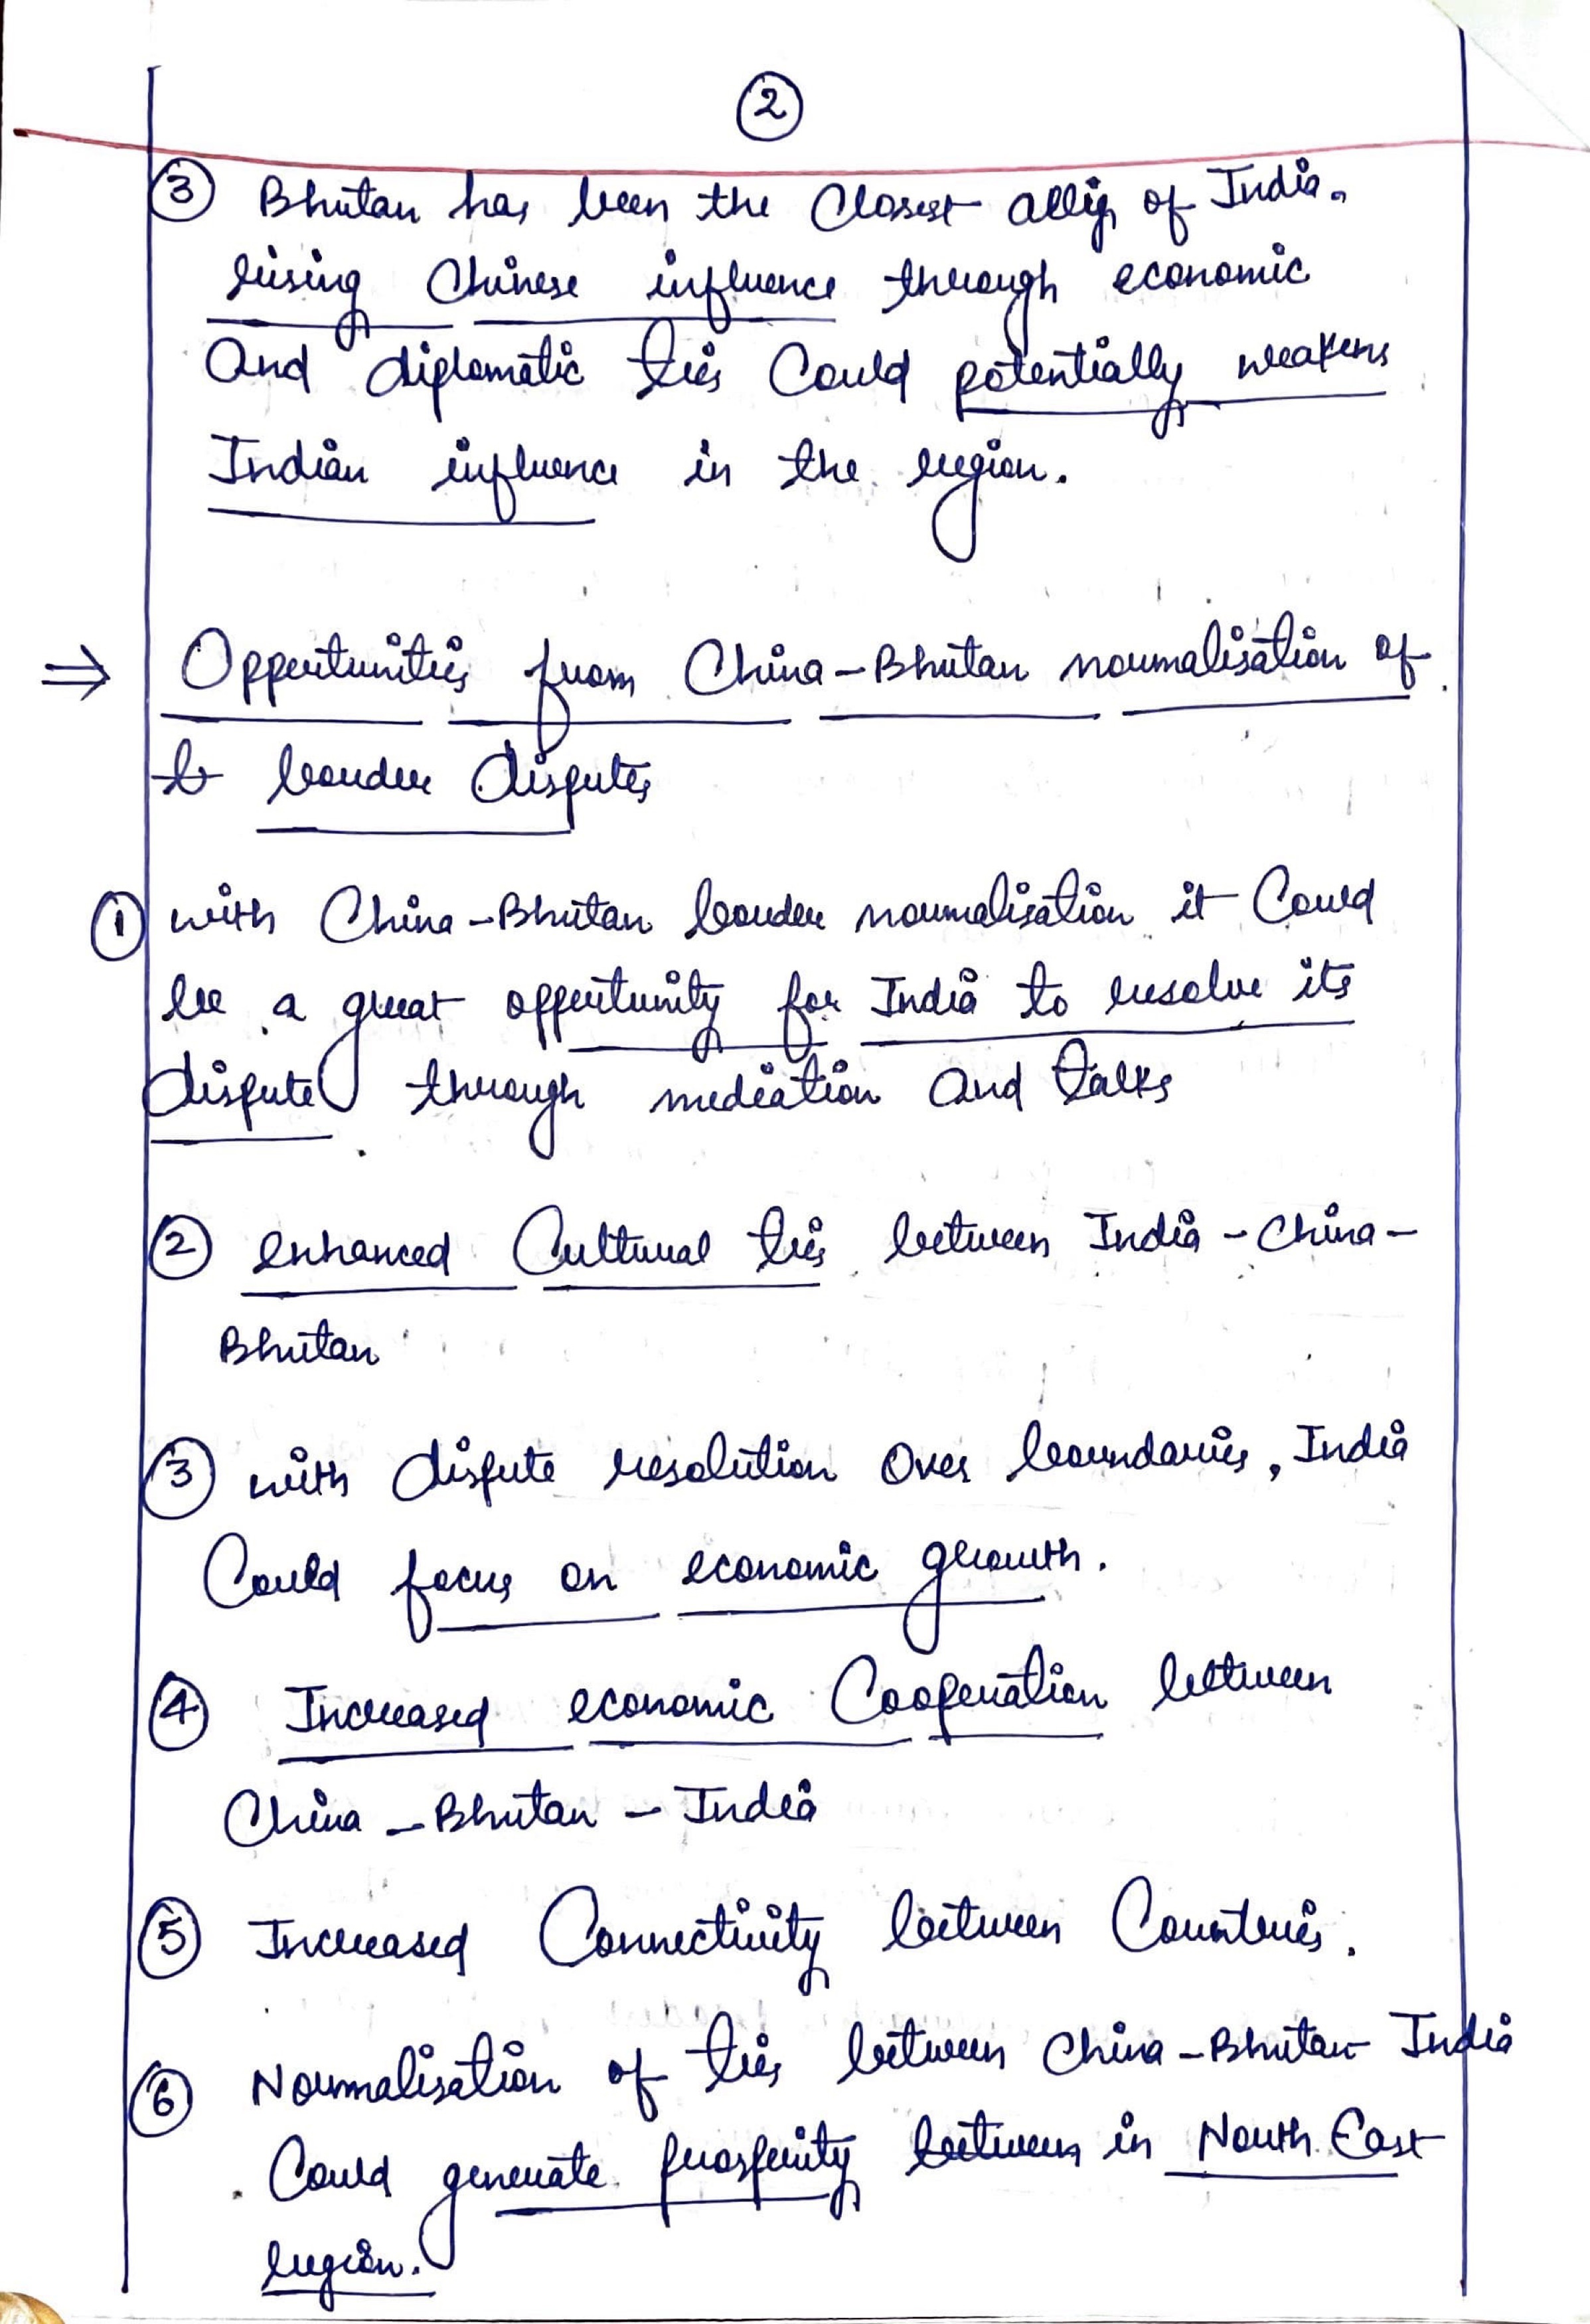 2
3 Bhutan has been the closest ally of India.
rising Chinese influence through economic
and diplomatic ties could potentially weakens
Indian influence in the region.
⇒ Oppertunities from China-Bhutan normalisation of
border disputes
1 with China-Bhutan border normalisation it could
be a great oppertunity for India to resolve its
dispute through mediation and talks
2 enhanced Cultural ties between India-China-
Bhutan
3 with dispute resolution over boundaries, India
Could focus on economic growth.
4 Increased economic Cooperation between
China-Bhutan-India
5 Increased Connectivity between Countries.
6 Normalisation of ties between China-Bhutan India
Could generate prosperity between in North East
region.